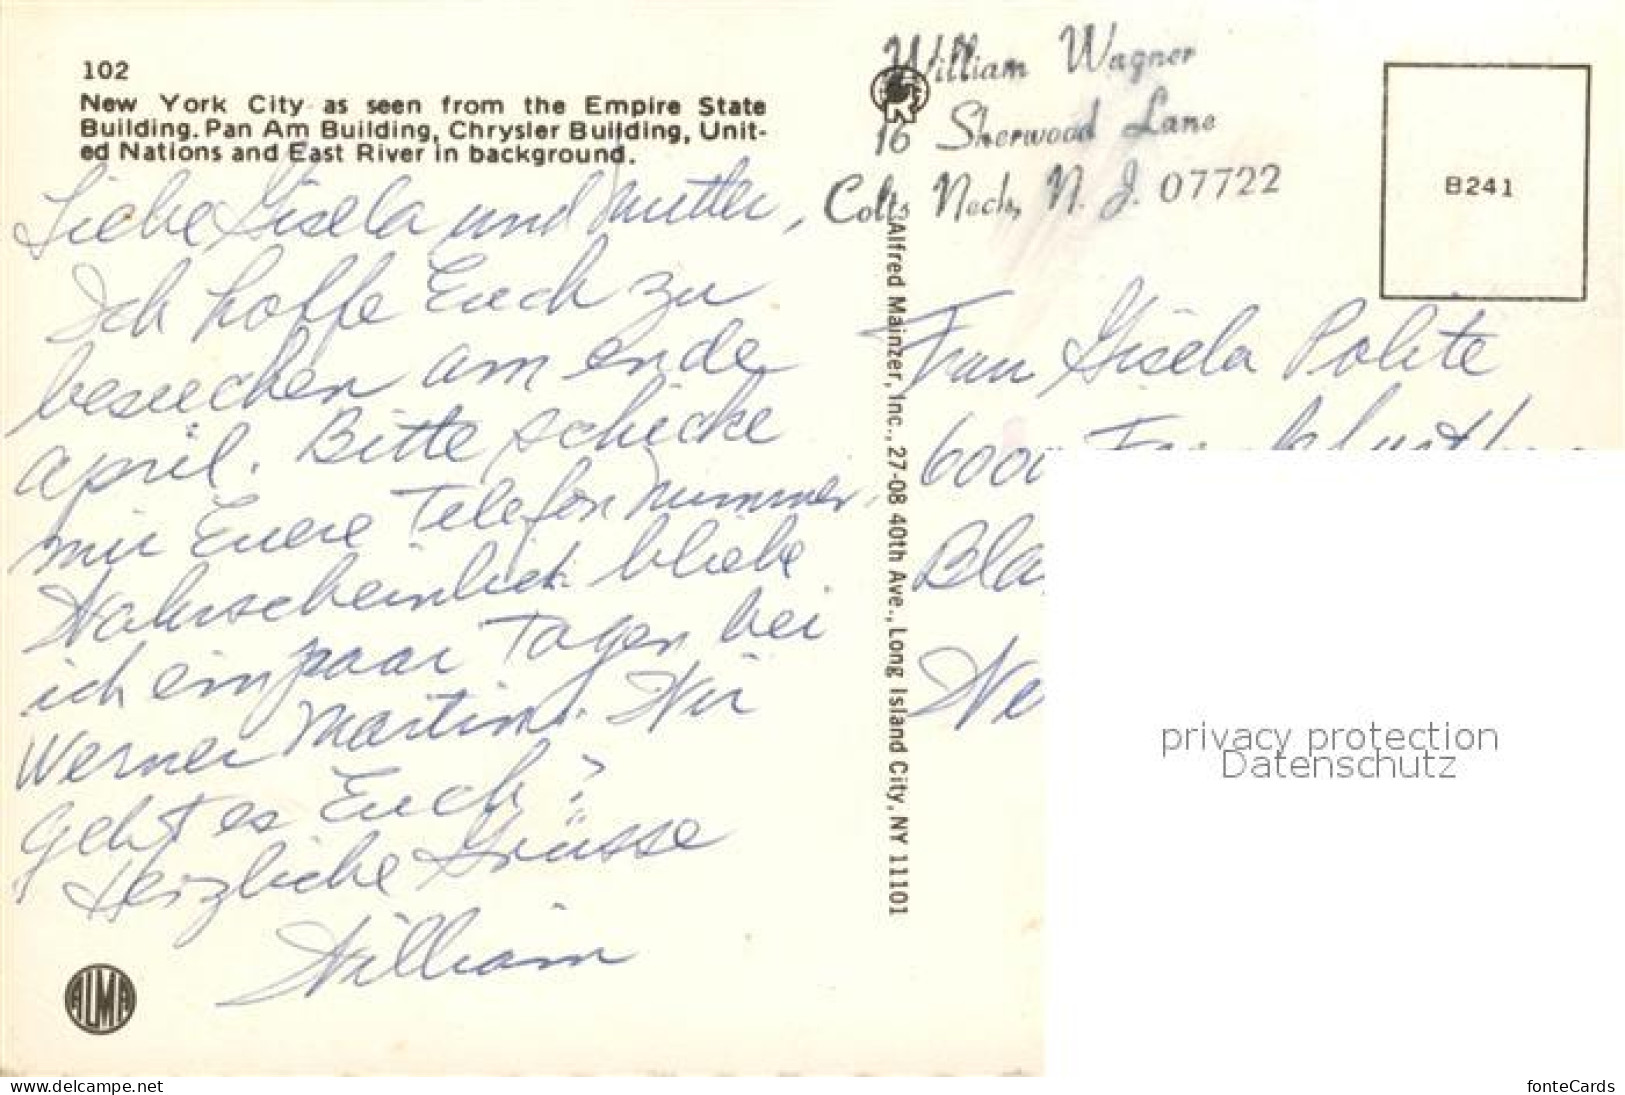 102
New York City as seen from the Empire State
Building. Pan Am Building, Chrysler Building, Unit-
ed Nations and East River in background.
Liebe Gisela und Mutter,
Ich hoffe Euch zu
besuchen am ende
april. Bitte schicke
mir Euere Telefon nummer.
Wahrscheinlich bleibe
ich ein paar Tagen bei
Werner Martin. Wie
geht es Euch?
Herzliche Grüsse
William
ALMA
Alfred Mainzer, Inc., 27-08 40th Ave., Long Island City, NY 11101
William Wagner
16 Sherwood Lane
Colts Neck, N. J. 07722
B241
Frau Gisela Polite
6000 Frankfurt
privacy protection
Datenschutz
www.delcampe.net
fonteCards